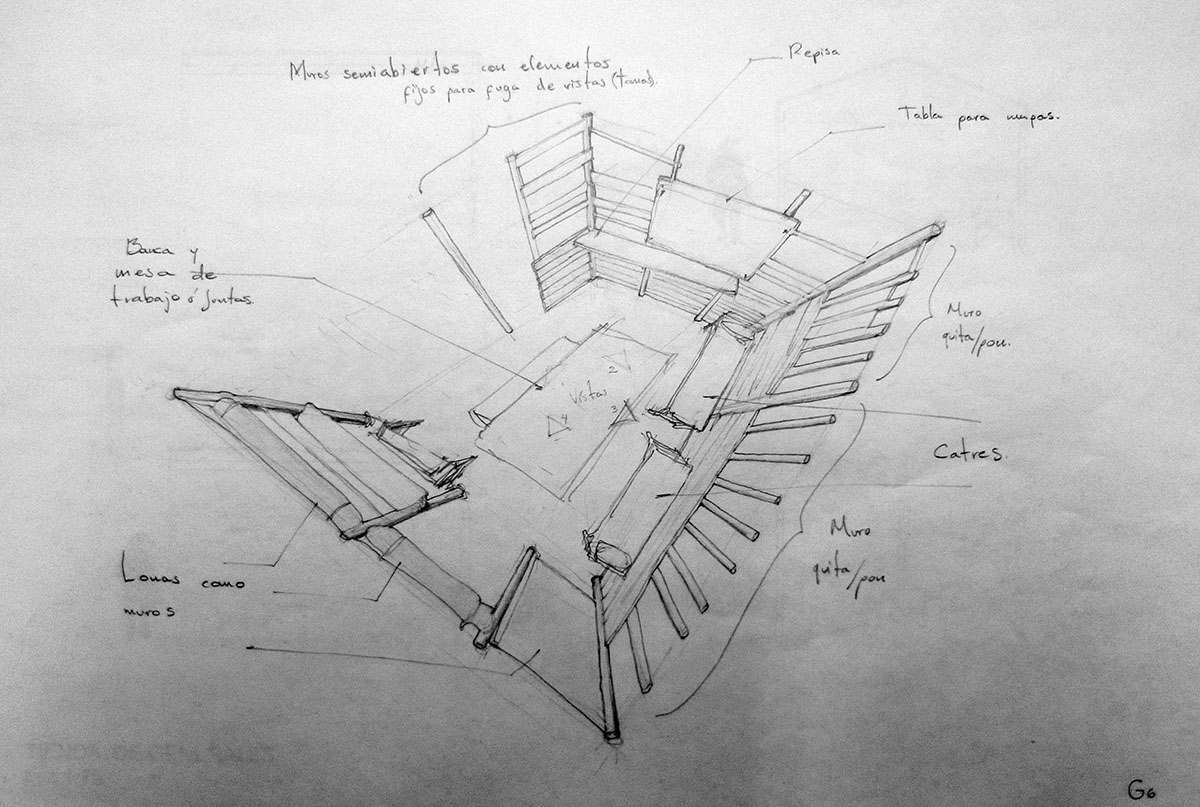 Muros semiabiertos con elementos
fijos para fuga de vistas (tomas).
Repisa
Tabla para mapas.
Banca y
mesa de
trabajo ó juntas.
Muro
quita/pon.
Vistas
2
3
4
Catres.
Muro
quita/pon
Lonas como
muros
G6